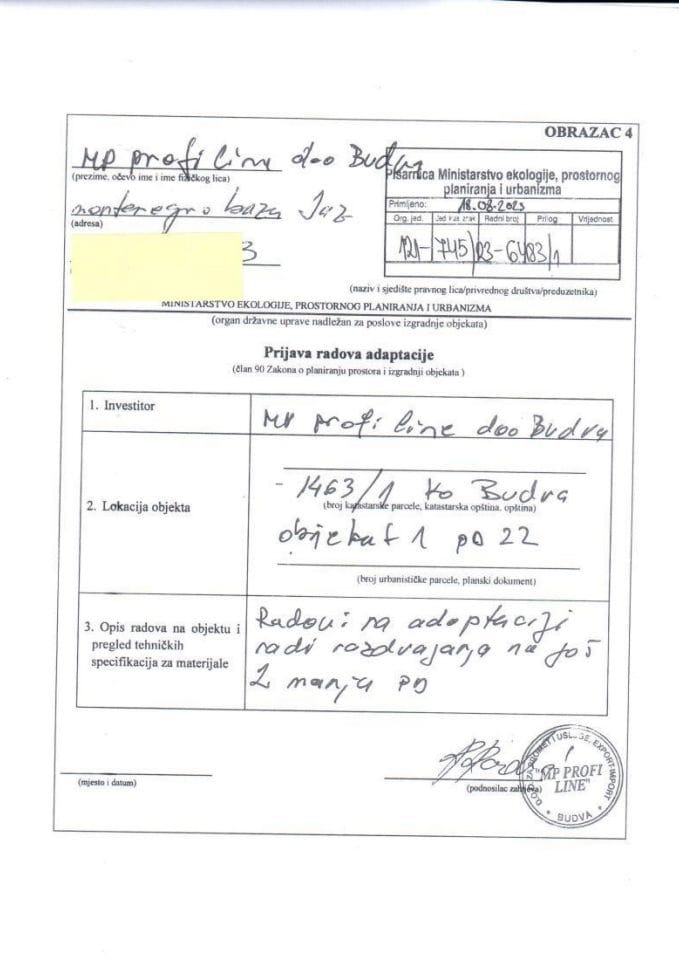 OBRAZAC 4
MP profi line doo Budva
(prezime, očevo ime i ime fizičkog lica)
Pisarnica Ministarstvo ekologije, prostornog
planiranja i urbanizma
Primljeno: 18.08.2023
Org. jed. Jed. klas. znak Radni broj Prilog Vrijednost
121- 745/ 03-6483/1
montenegro baza Jaz
(adresa)
3
(naziv i sjedište pravnog lica/privrednog društva/preduzetnika)
MINISTARSTVO EKOLOGIJE, PROSTORNOG PLANIRANJA I URBANIZMA
(organ državne uprave nadležan za poslove izgradnje objekata)
Prijava radova adaptacije
(član 90 Zakona o planiranju prostora i izgradnji objekata )
1. Investitor
MP profi line doo Budva
2. Lokacija objekta
- 1463/1 KO Budva
(broj katastarske parcele, katastarska opština, opština)
objekat 1 PD 22
(broj urbanističke parcele, planski dokument)
3. Opis radova na objektu i
pregled tehničkih
specifikacija za materijale
Radovi na adaptaciji
radi razdvajanja na još
2 manja PD
(mjesto i datum)
(podnosilac zahtjeva)
D.O.O. ZA PROMET I USLUGE, EXPORT-IMPORT
"MP PROFI
LINE"
BUDVA